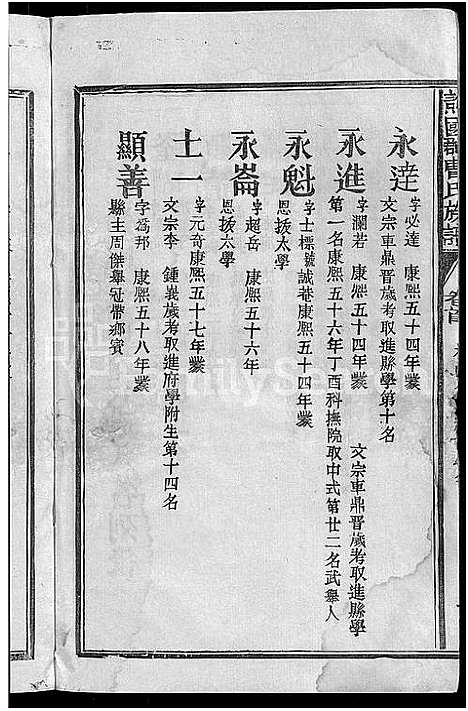 譙國郡曹氏族譜
卷首
永達
字必達 康熙五十四年叢
文宗車鼎晉歲考取進縣學第十名
永進
字瀾若 康熙五十四年叢 文宗車鼎晉歲考取進縣學
第一名康熙五十六年丁酉科撫院取中式第廿二名武舉人
永魁
字士標號誠菴康熙五十四年叢
恩拔太學
永崙
字超岳 康熙五十六年
恩拔太學
士一
字元奇康熙五十七年叢
文宗李 鍾峩歲考取進府學附生第十四名
顯善
字為邦 康熙五十八年叢
縣主周傑舉冠帶鄉賓